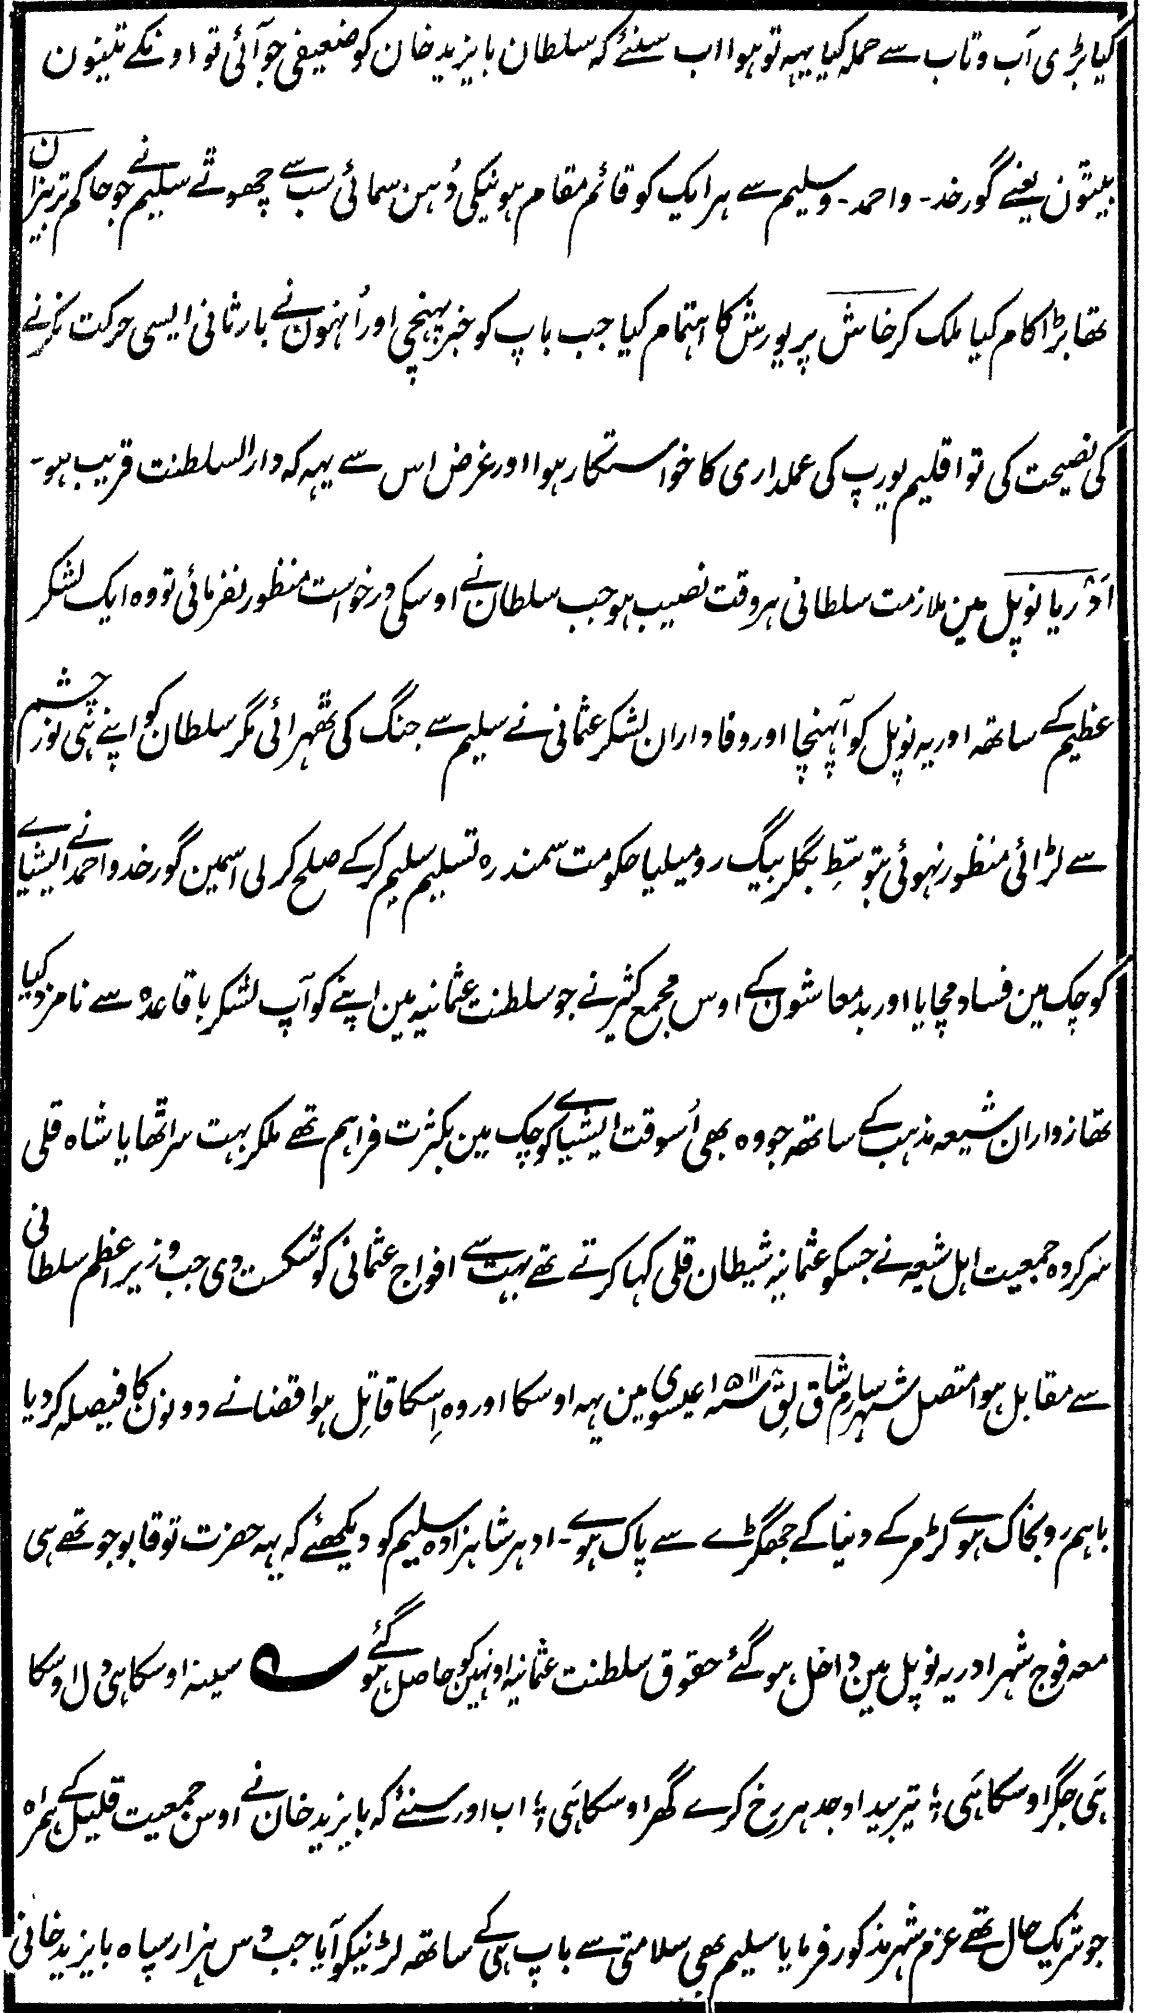 کیا بڑی آب و تاب سے حملہ کیا یہہ تو ہوا اب سنئے کہ سلطان بایزید خان کو ضعیفی جو آئی تو اونکے تینون
بیٹون یعنے گورخد۔ واحمد۔ وسلیم سے ہر ایک کو قائم مقام ہونیکی دُہن سمائی سب سے چھوٹے سلیم نے جو حاکم تربزان
تھا بڑا کام کیا ملک کرخاش پر یورش کا اہتمام کیا جب باپ کو خبر پہنچی اور اُنہون نے بار ثانی ایسی حرکت نکرنے
کی نصیحت کی تو اقلیم یورپ کی عملداری کا خواستگار ہوا اور غرض اس سے یہہ کہ دار السلطنت قریب ہو۔
اَڈریانوپل مین ملازمت سلطانی ہر وقت نصیب ہو جب سلطان نے اوسکی درخواست منظور نفرمائی تو وہ ایک لشکر
عظیم کے ساتھہ اودریہ نوپل کو آپہنچا اور وفاداران لشکر عثمانی نے سلیم سے جنگ کی ٹھہرائی مگر سلطان کو اپنے ہی نور چشم
سے لڑائی منظور نہوئی بتوسّطِ بگلربیگ رومیلیا حکومت سمندرہ تسلیم سلیم کرکے صلح کرلی اسمین گورخد واحمد نے ایشیاے
کوچک مین فساد مچایا اور بدمعاشون کے اوس مجمع کثیر نے جو سلطنت عثمانیہ مین اپنے کو آپ لشکر باقاعدہ سے نامزد کیا
تھا زواران شیعہ مذہب کے ساتھہ جو وہ بھی اُسوقت ایشیاے کوچک مین بکثرت فراہم تھے ملکر بہت سر اٹھایا شاہ قلی
سرکردہ جمعیت اہل شیعہ نے جسکو عثمانیہ شیطان قلی کہا کرتے تھے بہت سے افواج عثمانی کو شکست دی جب وزیر اعظم سلطانی
سے مقابل ہوا متصل شہر سارمشاق لق سنہ ۱۵۱۱ عیسوی مین یہہ اوسکا اور وہ اِسکا قاتل ہوا قضا نے دونون کا فیصلہ کردیا
باہم رو بخاک ہوے لڑ مرکے دنیا کے جھگڑے سے پاک ہوے۔ ادہر شاہزادہ سلیم کو دیکھئے کہ یہہ حضرت تو قابو جو تھے ہی
معہ فوج شہر ادریہ نوپل مین داخل ہوگئے حقوق سلطنت عثمانیہ اونہین کو حاصل ہوگئے ؎ سینہ اوسکا ہی دل اوسکا
ہَی جگر اوسکا ہَی ؛ تیر بیداو جدہر رخ کرے گھر اوسکا ہَی ؛ اب اور سنئے کہ بایزید خان نے اوس جمعیت قلیل کے ہمراہ
جو شریک حال تھے عزم شہر مذکور فرمایا سلیم بھی سلامتی سے باپ ہی کے ساتھہ لڑنیکو آیا جب دس ہزار سپاہ بایزید خانی